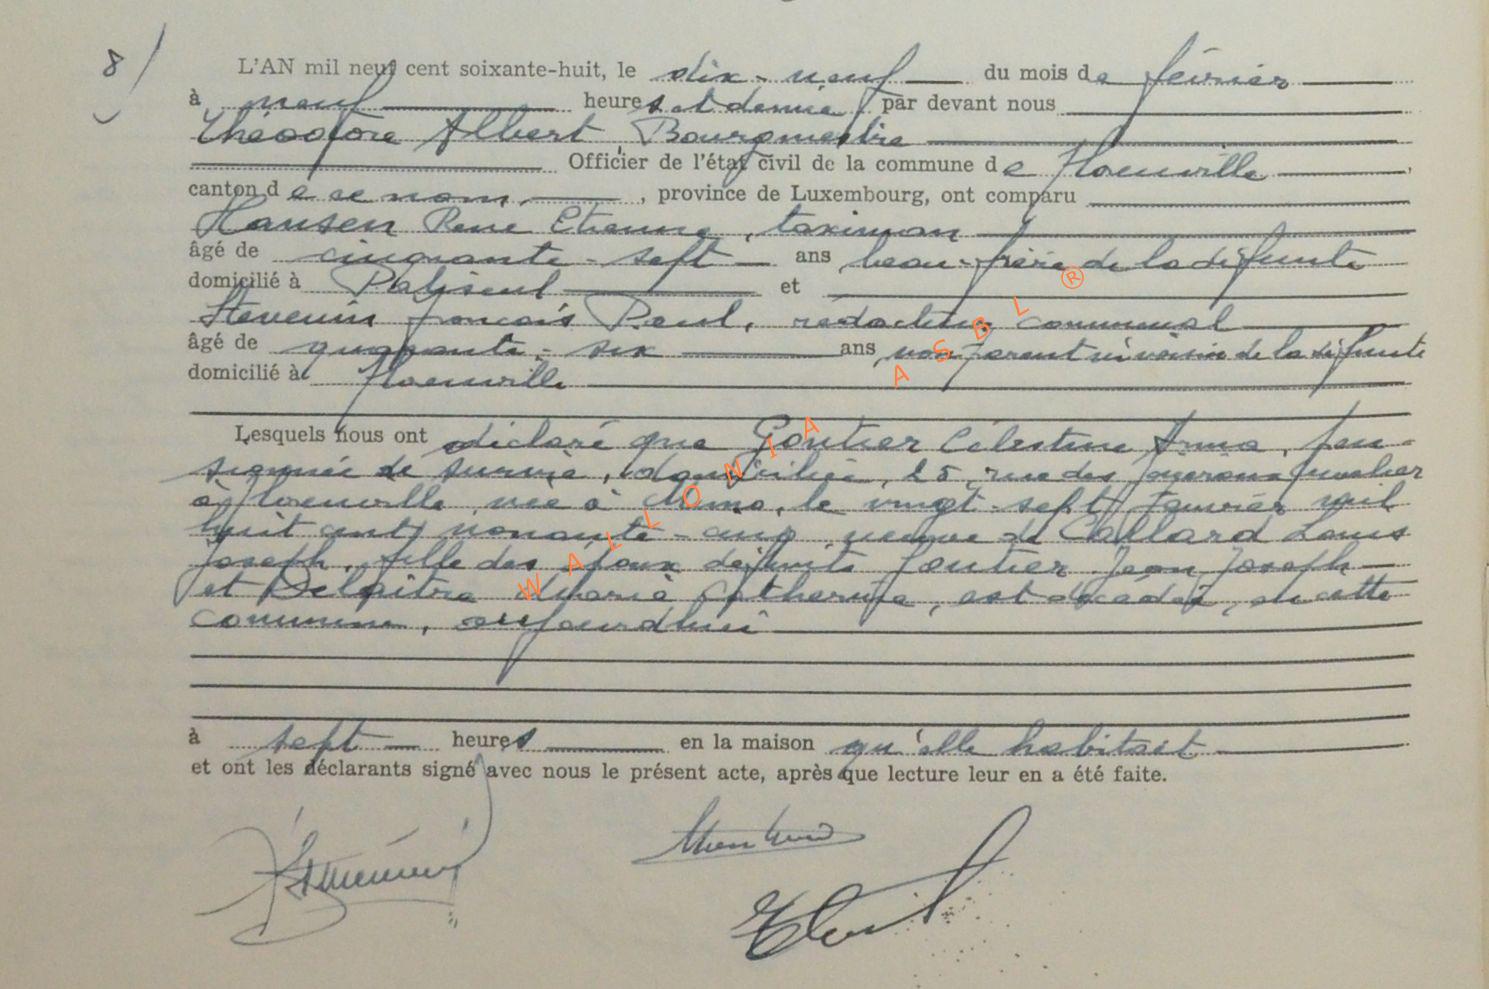 8/
L'AN mil neuf cent soixante-huit, le dix-neuf du mois de février
à neuf heures et demie par devant nous
Théodore Albert Bourgmestre
Officier de l'état civil de la commune de Florenville,
canton de ce nom, province de Luxembourg, ont comparu
Hansen René Etienne, taximan
âgé de cinquante-sept ans beau-frère de la défunte
domicilié à Paliseul et
Stevenin François Paul, rédacteur communal
âgé de quarante-six ans non parent ni voisin de la défunte
domicilié à Florenville
Lesquels nous ont déclaré que Goutier Célestine Anna, pen-
sionnée de survie, domiciliée, 25, rue des
à Florenville née à Muno, le vingt-sept janvier mil
huit cent nonante-cinq veuve de Collard Louis
Joseph, fille des époux défunts Goutier Jean Joseph
et Delaitre Marie Catherine, est décédée, en cette
commune, aujourd'hui
à sept heures en la maison qu'elle habitait
et ont les déclarants signé avec nous le présent acte, après que lecture leur en a été faite.
WALLONIA ASBL ®